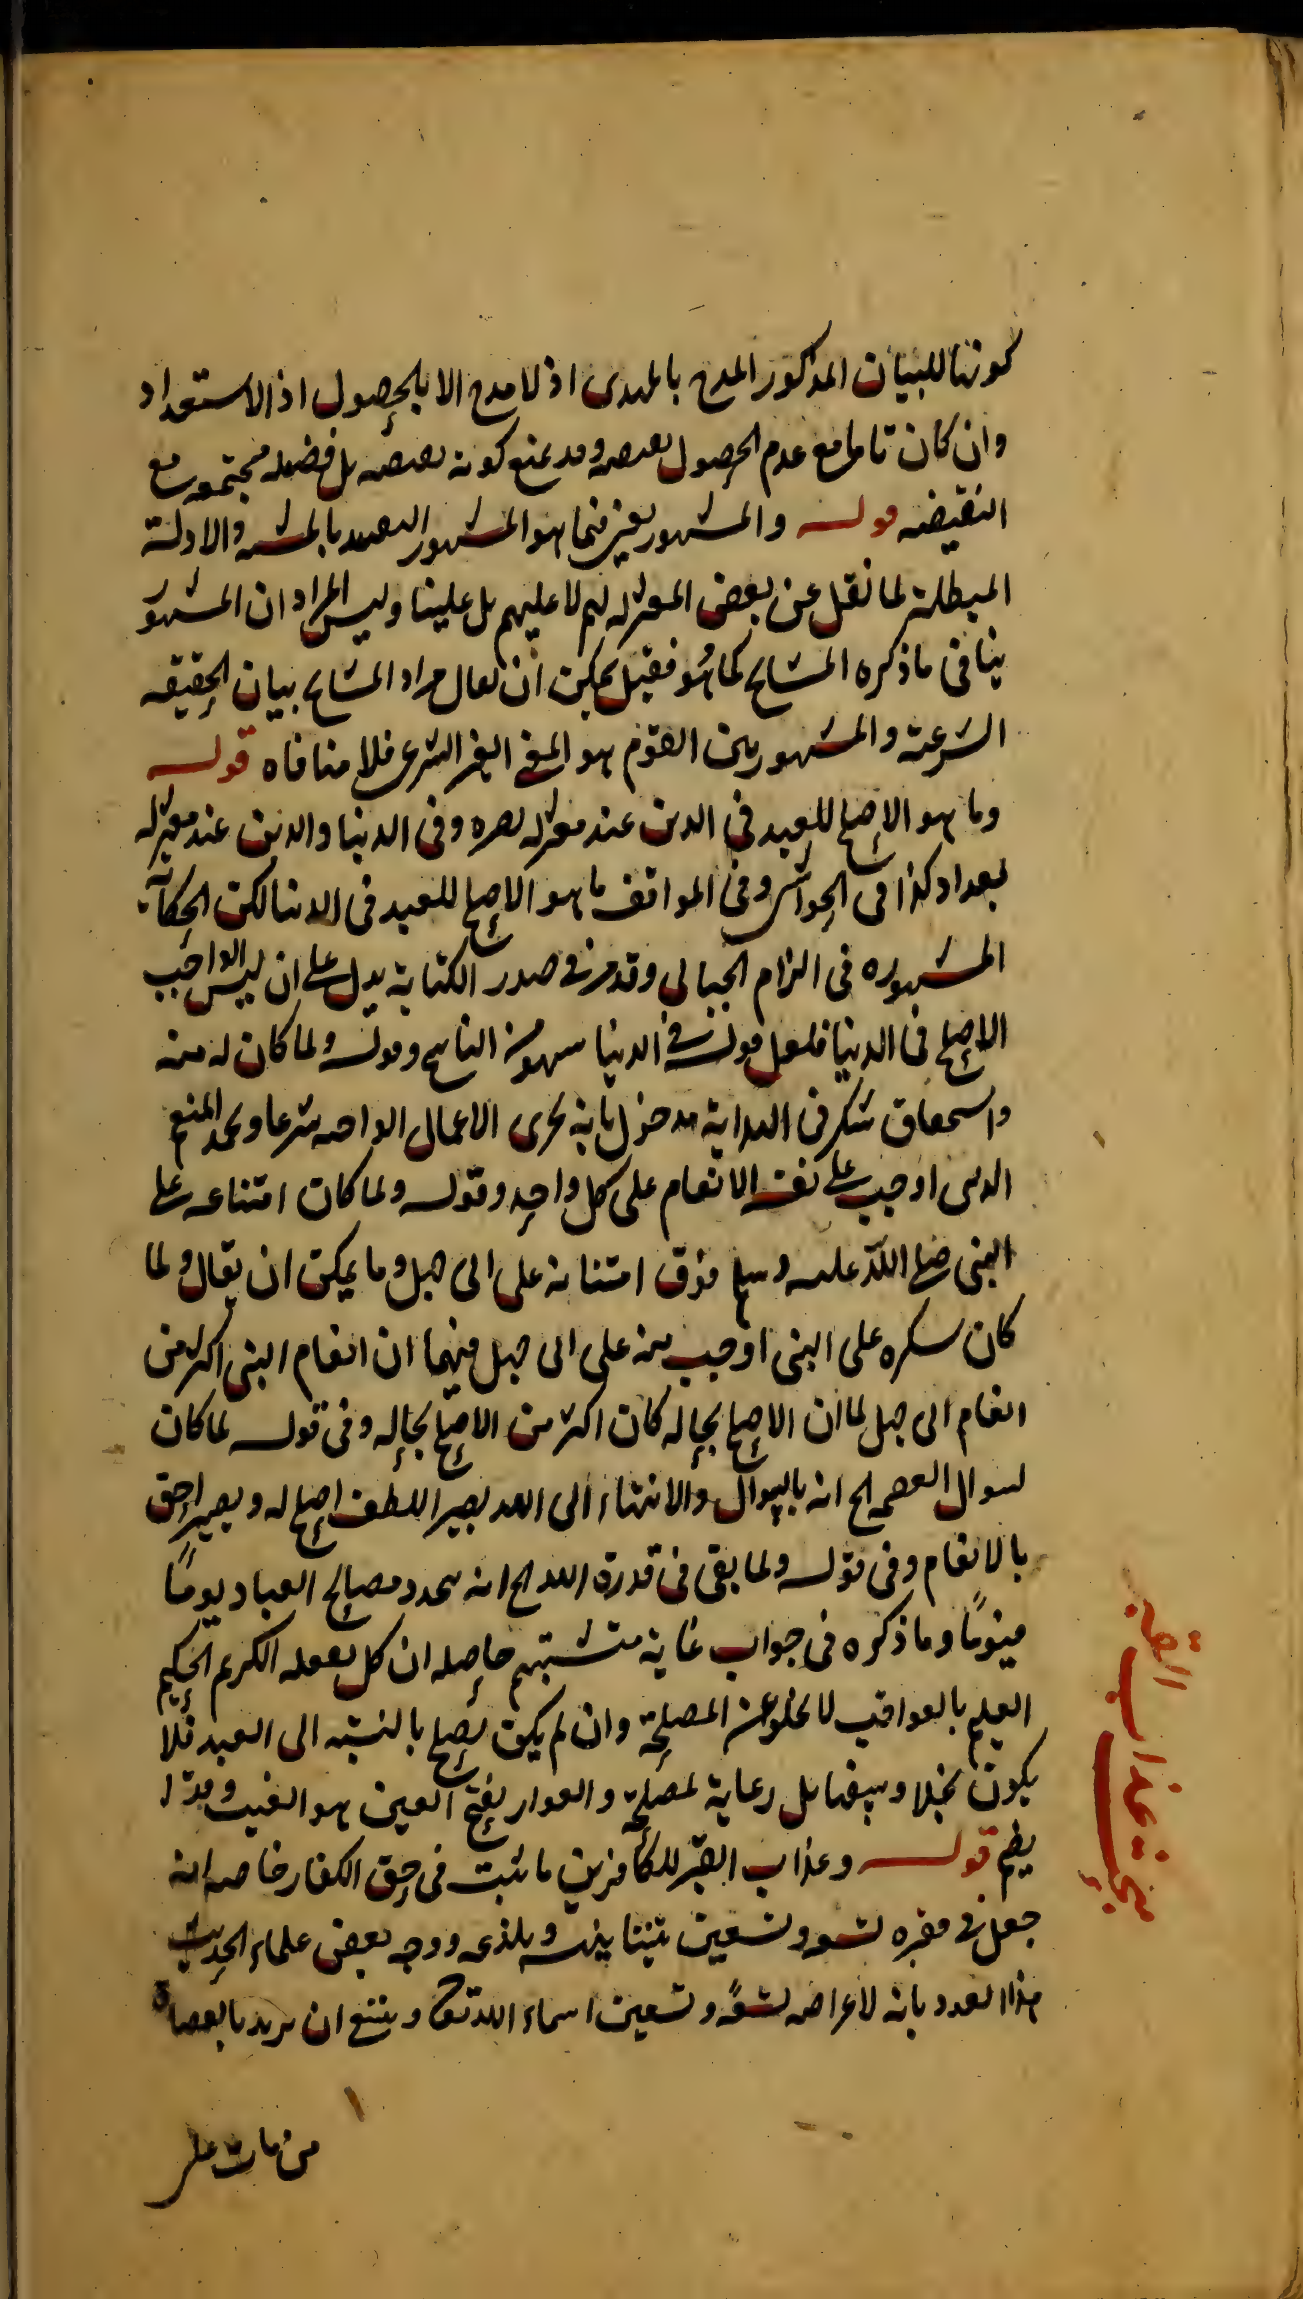 كونها للبيان المذكور المدح بالمهدى اذ لا مدح الا بالحصول اذ الاستعداد
وان كان تاما مع عدم الحصول نقيصه وقد يمنع كونه نقيصه بل فضيله مجتمعه مع
النقيضه قوله والمشهور يعنى فيما هو المشهور المقيد بالمشيه والادلة
المبطلة لما نقل عن بعض المعتزله لهم لا عليهم بل علينا وليس المراد ان المشهور
ينافى ما ذكره المشايخ كما هو فقيل يمكن ان يقال مراد المشايخ بيان الحقيقه
الشرعيه والمشهور بين القوم هو المعنى الغير الشرعى فلا منافاه قوله
وما هو الاصلح للعبد فى الدين عند معتزله بصره وفى الدنيا والدين عند معتزله
بغداد كذا فى الحواشى وفى المواقف ما هو الاصلح للعبد فى الدنيا لكن الحكاية
المشهوره فى الزام الجبائى وقد مر فى صدر الكتاب يدل على ان ليس الواجب
الاصلح فى الدنيا فلعل قوله فى الدنيا سهو من الناسخ وقوله ولما كان له منه
واستحقاق شكر فى الهداية مدخول بانه يجرى الاعمال الواجبه شرعا وحمد المنعم
الذى اوجب على نفسه الانعام على كل واحد وقوله ولما كان امتنانه على
النبى صلى الله عليه وسلم فوق امتنانه على ابى جهل وما يمكن ان يقال ولما
كان شكره على النبى اوجب منه على ابى جهل فيهما ان انعام النبى اكثر من
انعام ابى جهل لما ان الاصلح بحاله كان اكثر من الاصلح بحاله وفى قوله لما كان
لسوال العصمه الخ انه بالسوال والانتهاء الى الله يصير اللطف اصلح له ويصير احق
بالانعام وفى قوله ولما بقى فى قدرة الله الخ انه يتجدد مصالح العباد يوما
فيوما وما ذكره فى جواب غاية متشبثهم حاصله ان كل يفعله الكريم الحكيم
العليم بالعواقب لا يخلو عن المصلحة وان لم يكن يصلح بالنسبه الى العبد فلا
يكون بخلا وسفها بل رعاية لمصلحة والعوار بفتح العين هو العيب وقد
يضم قوله وعذاب القبر للكافرين ما ثبت فى حق الكفار خاصه انه
جعل فى قبره تسعه وتسعين تنينا ينهشه ويلذعه ووجه بعض علماء الحديث
هذا العدد بانه لاعراضه تسعة وتسعين اسماء الله تعالى ويمتنع ان يريد بالعصاة
من مات على
بحث عذاب القبر